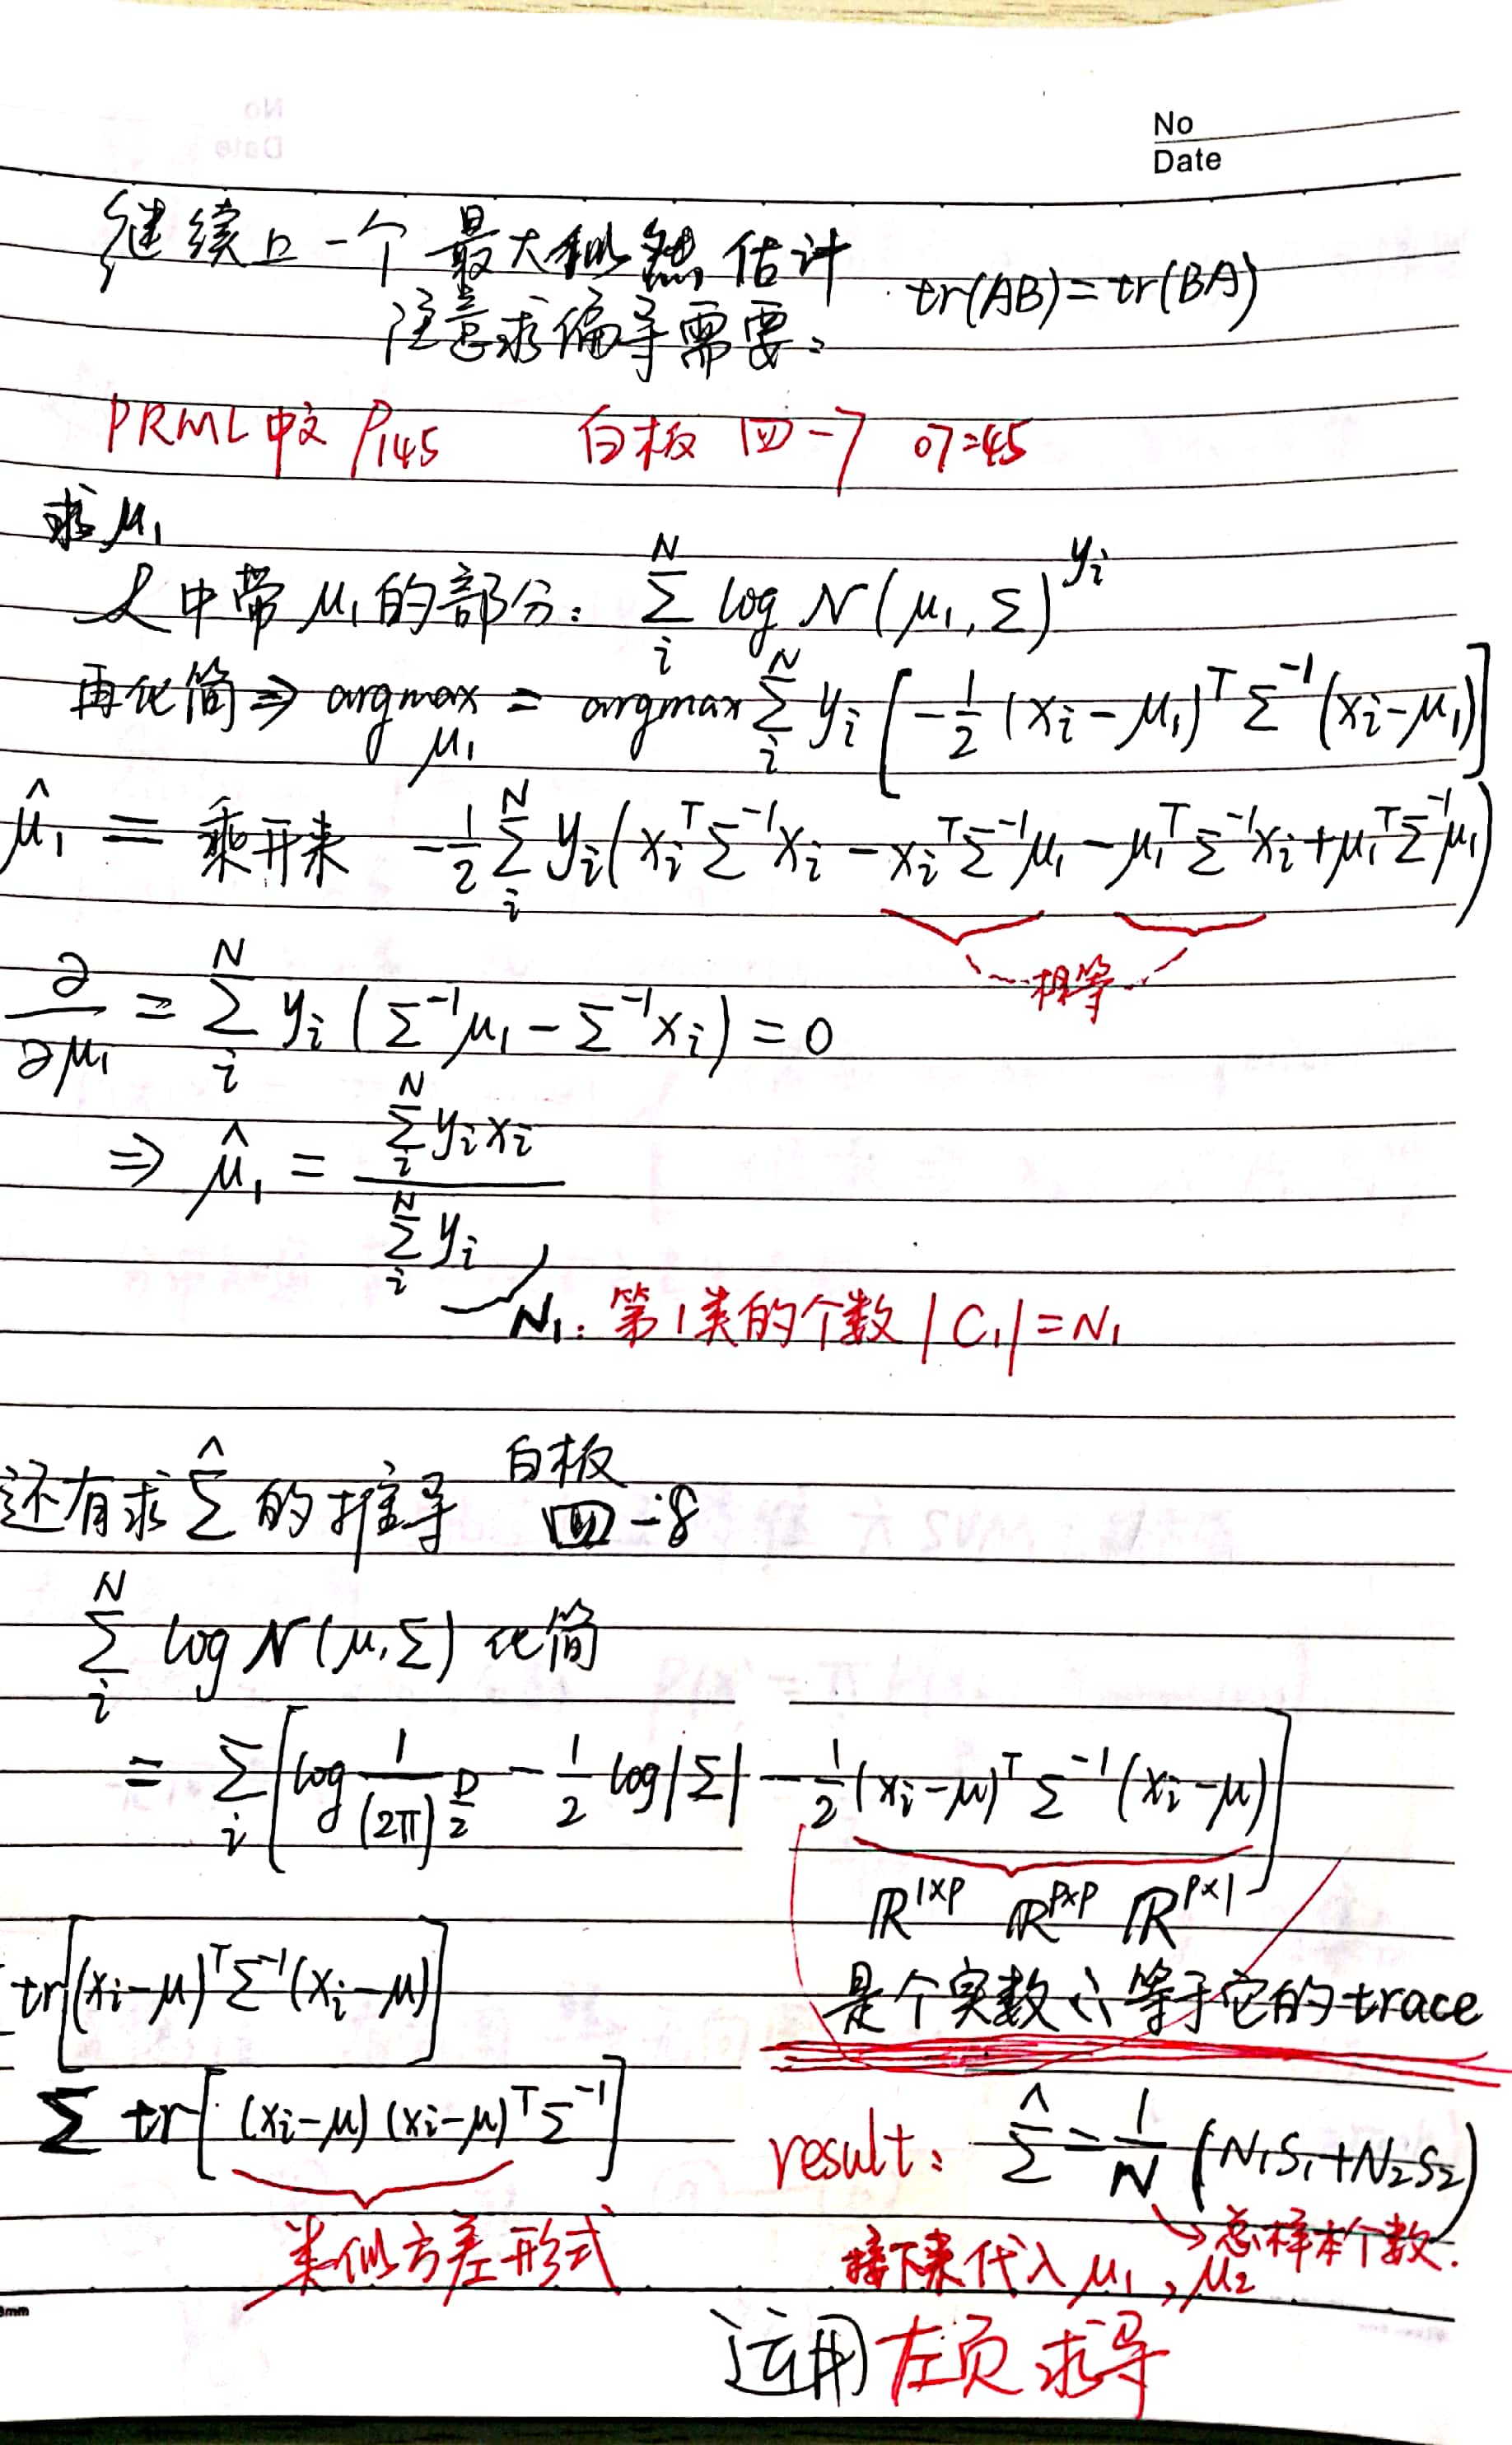 No
Date
继续上一个最大似然估计 tr(AB)=tr(BA)
注意求偏导需要:
PRML中文 P145 白板 四-7 07:45
求μ₁
L中带μ₁的部分: ∑ᵢᴺ log N(μ₁,Σ)^yᵢ
再化简⇒ argmax_μ₁ = argmax ∑ᵢᴺ yᵢ[-1/2 (xᵢ-μ₁)ᵀΣ⁻¹(xᵢ-μ₁)]
μ̂₁ = 乘开来 -1/2 ∑ᵢᴺ yᵢ(xᵢᵀΣ⁻¹xᵢ - xᵢᵀΣ⁻¹μ₁ - μ₁ᵀΣ⁻¹xᵢ + μ₁ᵀΣ⁻¹μ₁)
相等
∂/∂μ₁ = ∑ᵢᴺ yᵢ(Σ⁻¹μ₁ - Σ⁻¹xᵢ) = 0
⇒ μ̂₁ = ∑ᵢᴺ yᵢxᵢ / ∑ᵢᴺ yᵢ
N₁: 第1类的个数 |C₁|=N₁
白板
还有求Σ̂的推导 四-8
∑ᵢᴺ log N(μ,Σ) 化简
= ∑ᵢ[log 1/(2π)^(p/2) - 1/2 log|Σ| - 1/2 (xᵢ-μ)ᵀΣ⁻¹(xᵢ-μ)]
ℝ^(1×p) ℝ^(p×p) ℝ^(p×1)
tr[(xᵢ-μ)ᵀΣ⁻¹(xᵢ-μ)]
是个实数∴等于它的trace
∑ tr[(xᵢ-μ)(xᵢ-μ)ᵀΣ⁻¹]
result: Σ̂ = 1/N (N₁S₁+N₂S₂)
类似方差形式
总样本个数.
接下来代入μ₁,μ₂
运用左页求导
8mm